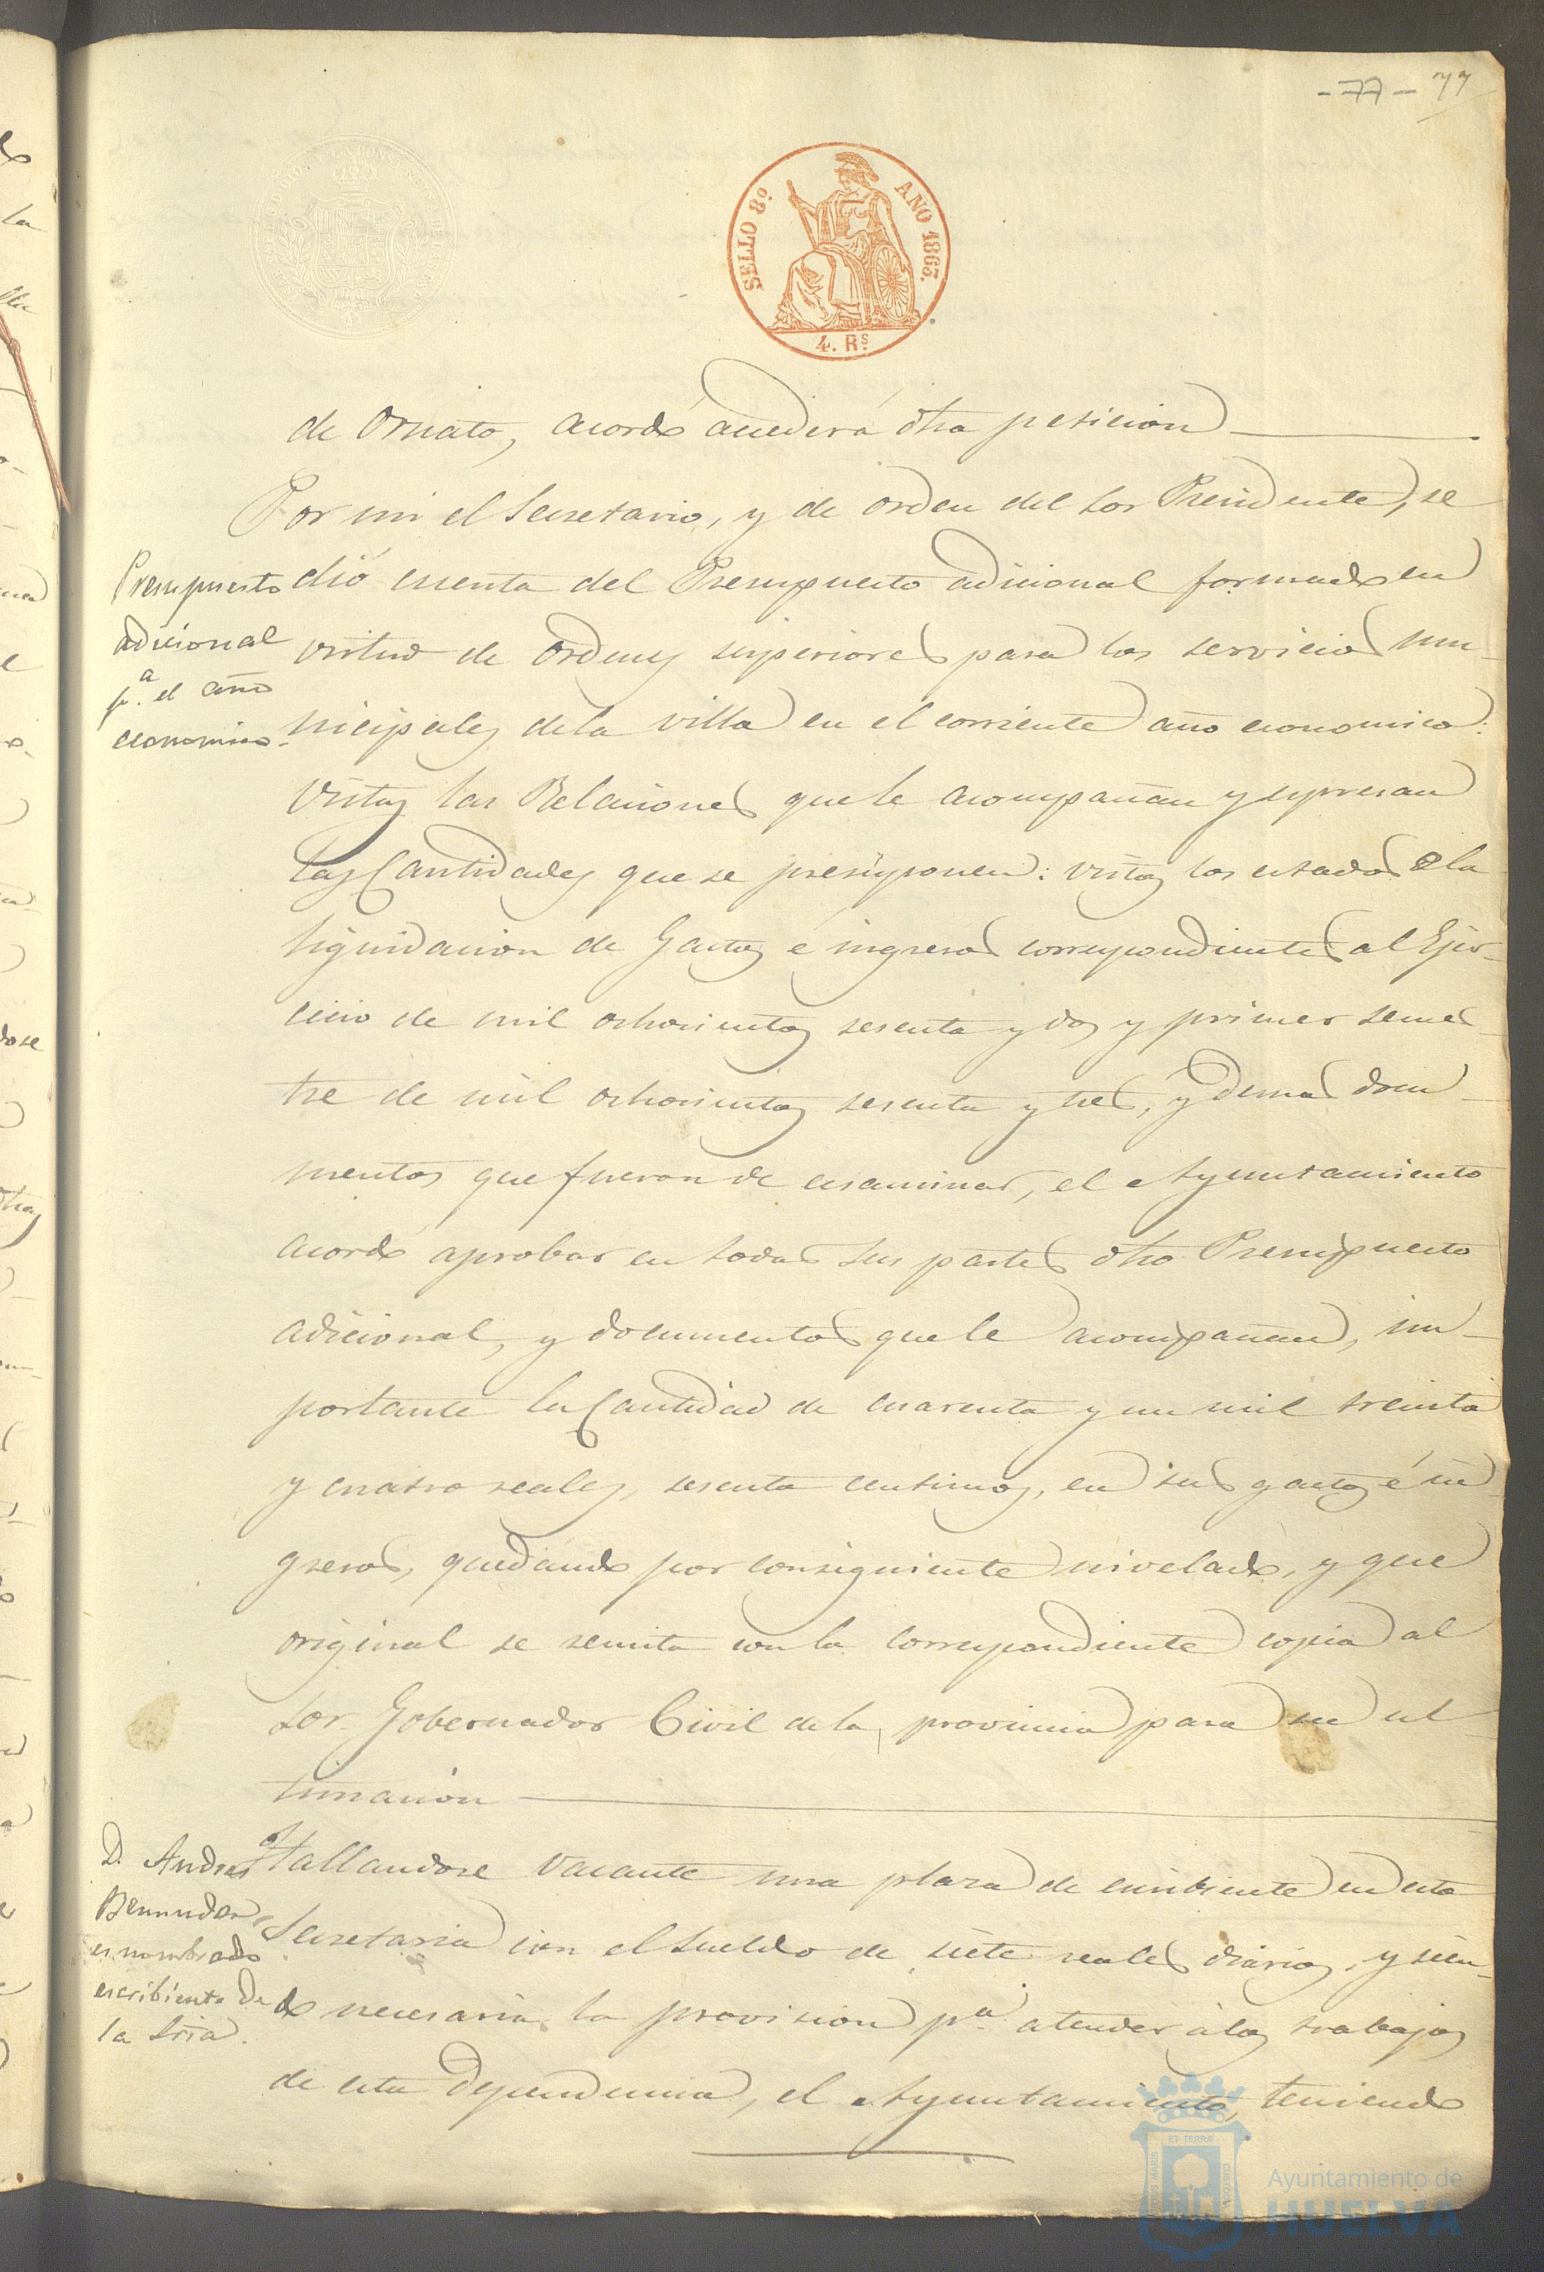 -77- 77
SELLO 8º AÑO 1863.
4. Rs
de Ornato, acordó acceder á dha peticion
Por mi el Secretario, y de orden del Sor Presidente, se
Presupuesto
adicional
pª. el año
economico.
dió cuenta del Presupuesto adicional formado en
virtud de ordenes superiores para los servicios mu-
nicipales de la villa en el corriente año economico:
Vistas las Relaciones que le acompañan y expresan
las Cantidades que se presuponen: vistos los estados de la
liquidacion de Gastos é ingresos correspondientes al Ejer-
cicio de mil ochocientos sesenta y dos y primer semes-
tre de mil ochocientos sesenta y tres, y demas docu-
mentos que fueron de examinar, el Ayuntamiento
acordó aprobar en todas sus partes dho Presupuesto
adicional, y documentos que le acompañan, im-
portante la Cantidad de cuarenta y un mil treinta
y cuatro reales, sesenta centimos, en sus gastos é in
gresos, quedando por consiguiente nivelado, y que
original se remita con la correspondiente copia al
Sor. Gobernador Civil de la provincia para su ul
timacion
D. Andres
Bermudez
es nombrado
escribiente de
la Sria.
Hallandose vacante una plaza de escribiente en esta
Secretaria con el sueldo de siete reales diarios, y sien-
do necesaria la provision pª. atender á los trabajos
de esta Dependencia, el Ayuntamiento, teniendo
Ayuntamiento de
HUELVA